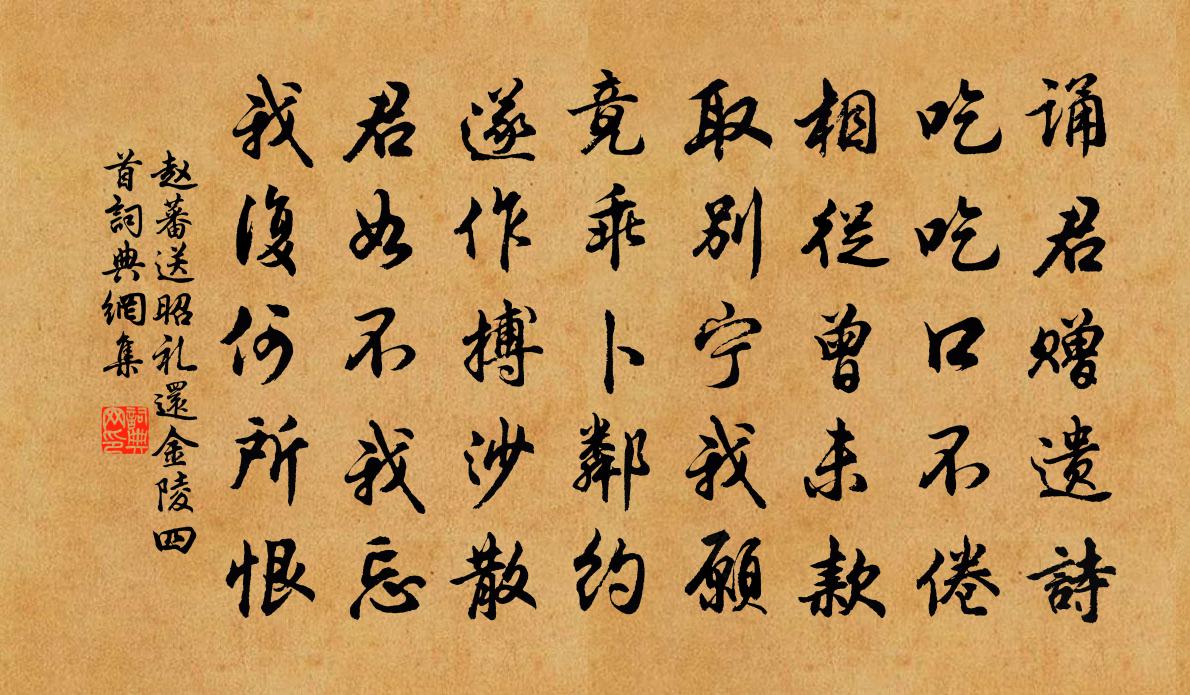 诵君赠遗詩
吃吃口不倦
相従曾未款
取别宁我願
竟乖卜鄰约
遂作搏沙散
君如不我忘
我復何所恨
赵蕃送昭礼還金陵四
首詞典網集
詞典
网印